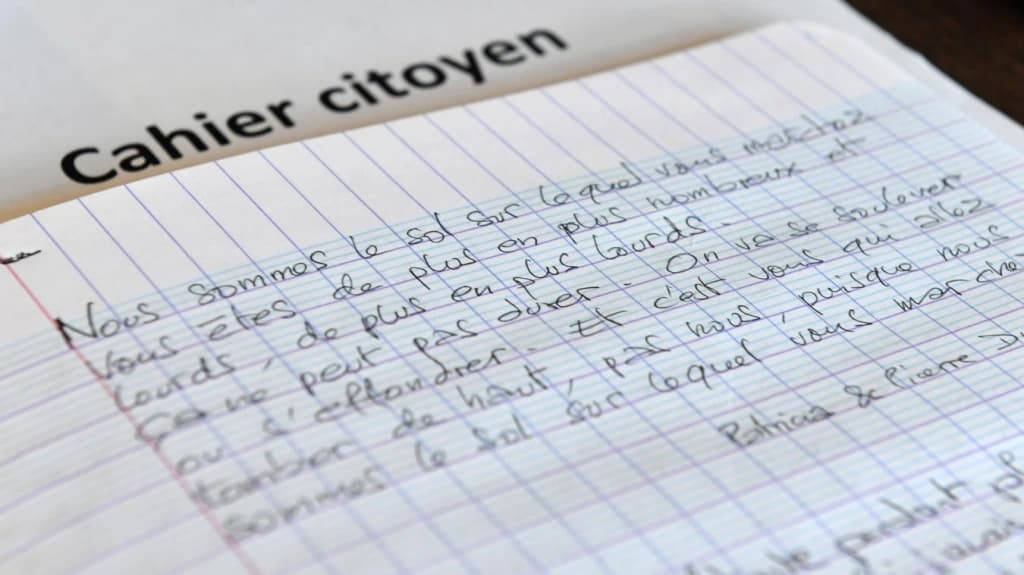 Cahier citoyen
Nous sommes le sol sur lequel vous marchez
Vous êtes de plus en plus nombreux et
lourds, de plus en plus lourds.
Ça ne peut pas durer. On va se soulever
ou s'effondrer. Et c'est vous qui allez
tomber de haut, pas nous, puisque nous
sommes le sol sur lequel vous marchez
Patricia & Pierre
pendant